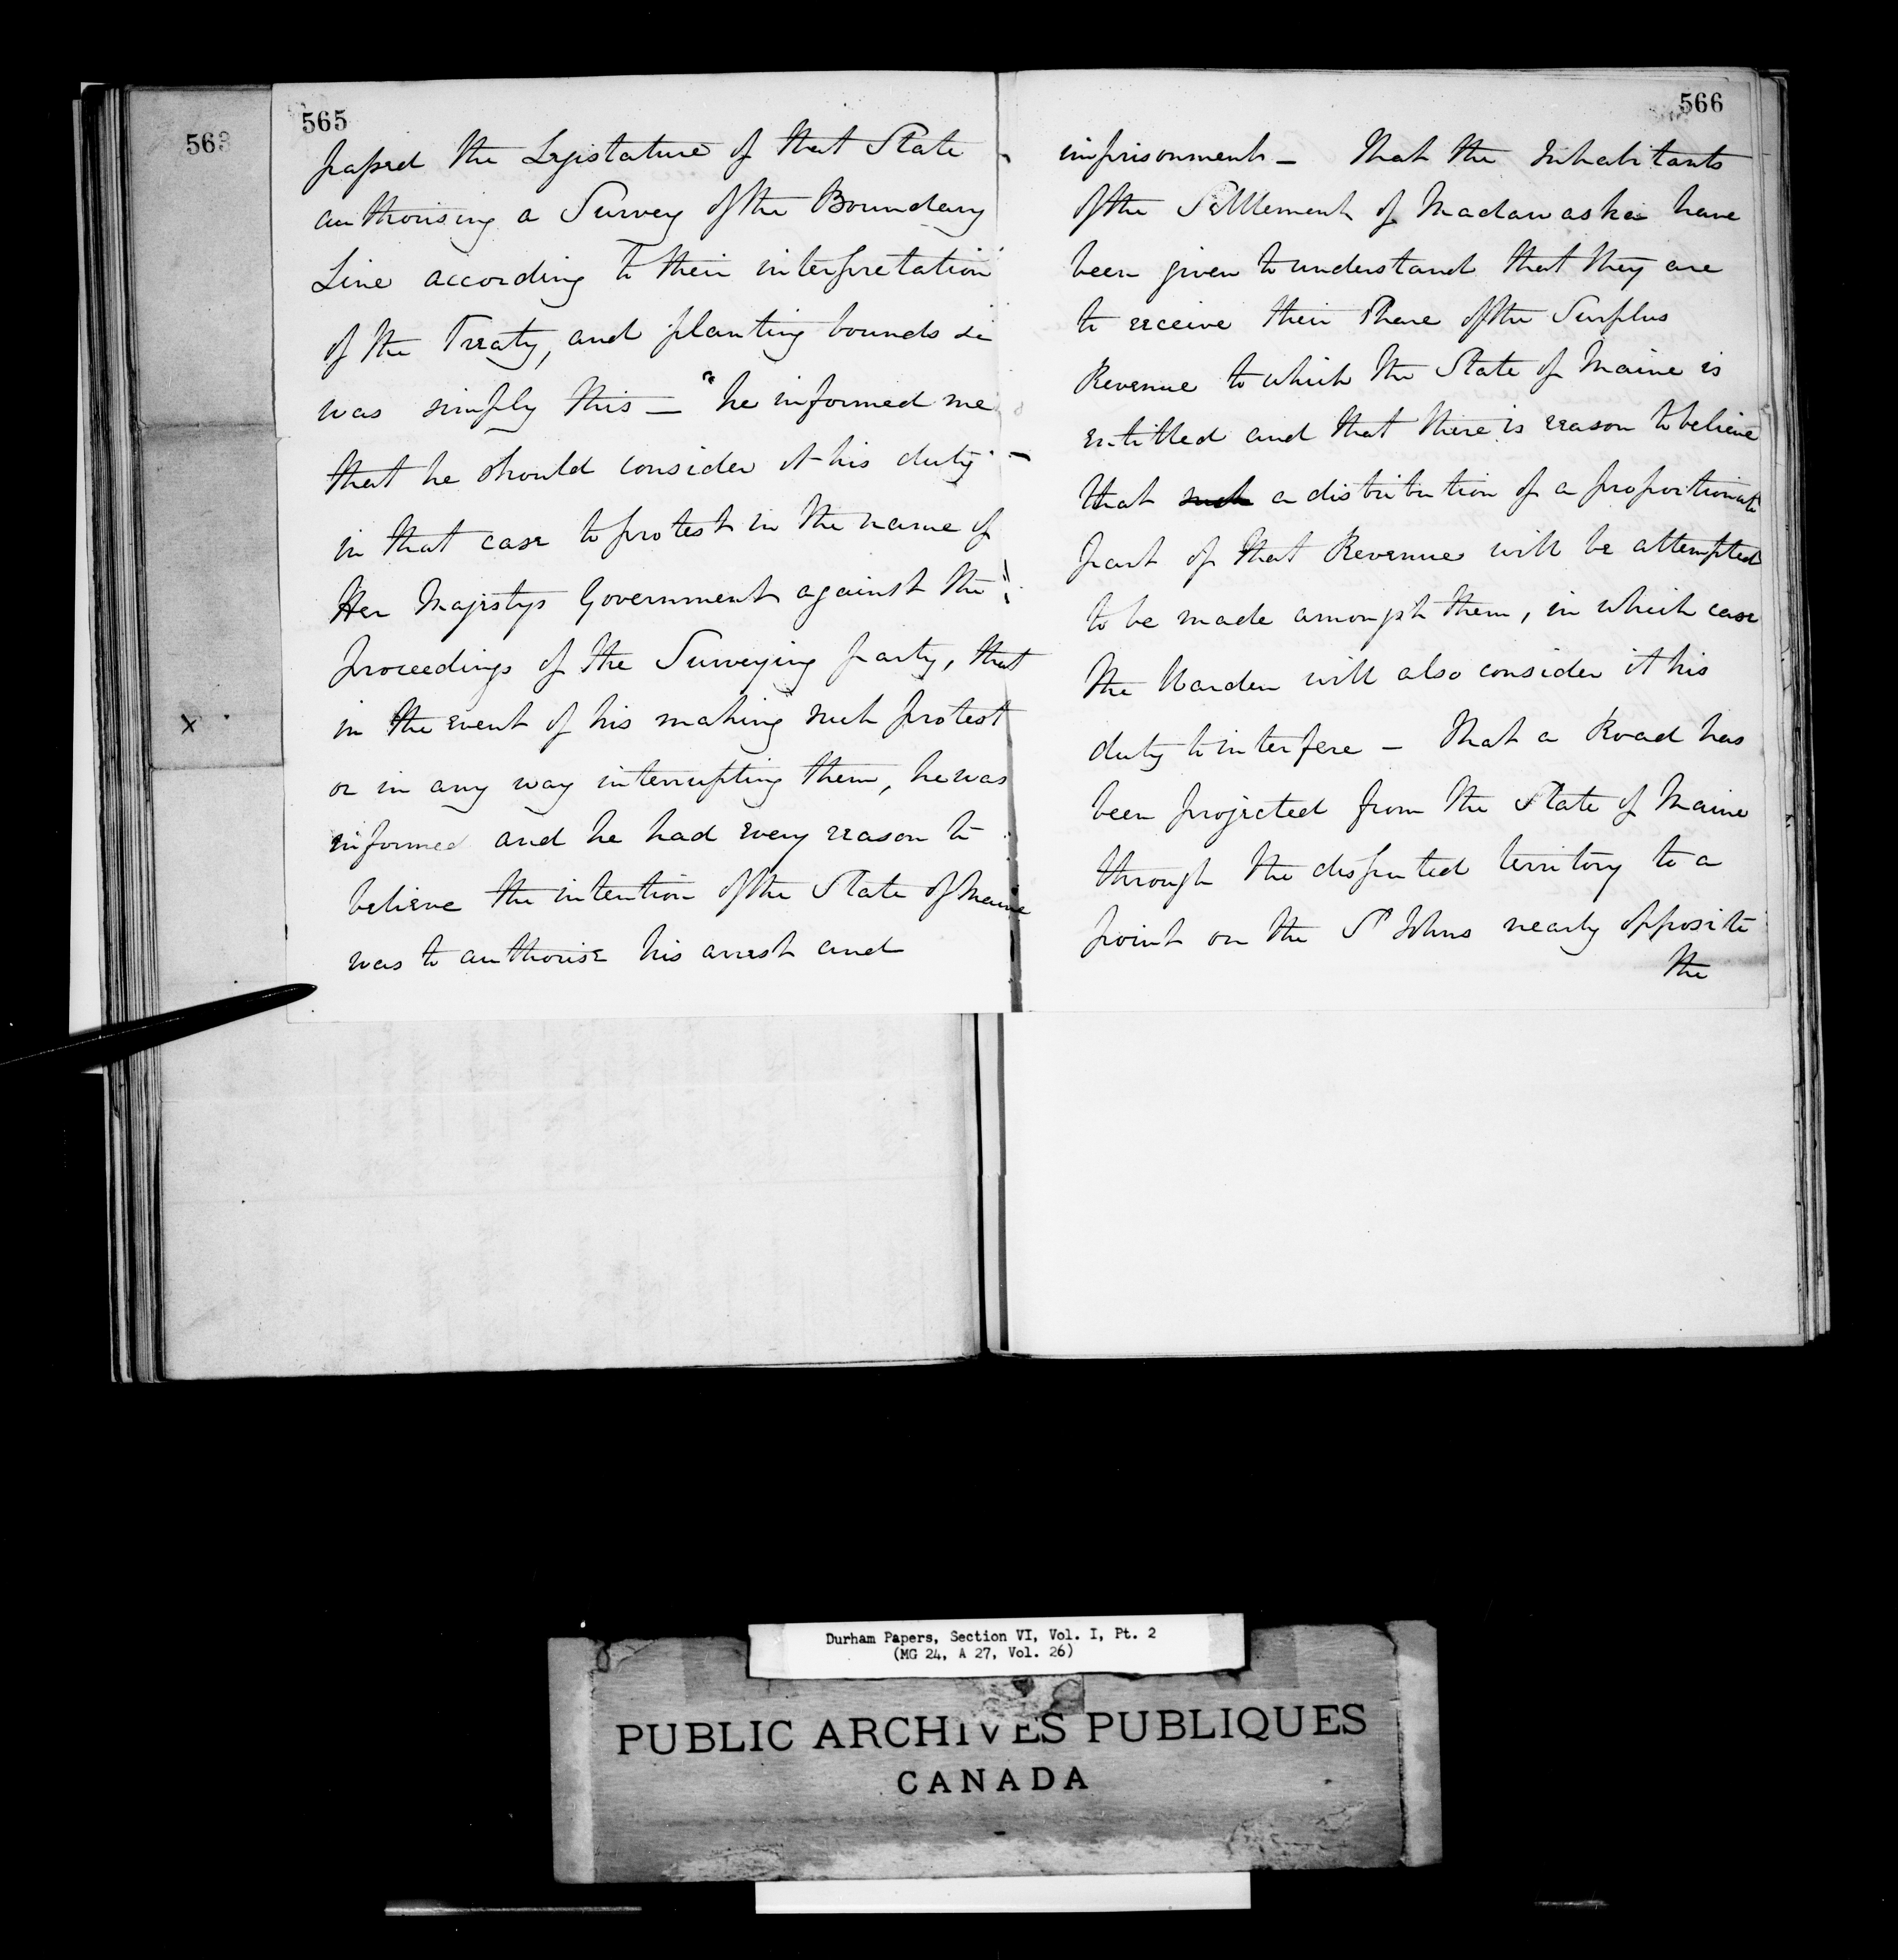 563
565
passed the Legistature of that State
authorising a Survey of the Boundary
Line according to their interpretation
of the Treaty, and planting bounds &c
was simply this — "he informed me
that he should consider it his duty —
in that case to protest in the name of
Her Majestys Government against the
proceedings of the Surveying party, that
in the event of his making such protest
or in any way interrupting them, he was
informed and he had every reason to
believe the intention of the State of Maine
was to authorise his arrest and
x
566
imprisonment — That the Inhabitants
of the Settlement of Madawaska have
been given to understand that they are
to receive their Share of the Surplus
Revenue to which the State of Maine is
entitled and that there is reason to believe
that such a distribution of a proportionate
part of that Revenue will be attempted
to be made amongst them, in which case
the Warden will also consider it his
duty to interfere — That a Road has
been projected from the State of Maine
through the disputed territory to a
point on the St Johns nearly opposite
the
Durham Papers, Section VI, Vol. I, Pt. 2
(MG 24, A 27, Vol. 26)
PUBLIC ARCHIVES PUBLIQUES
CANADA